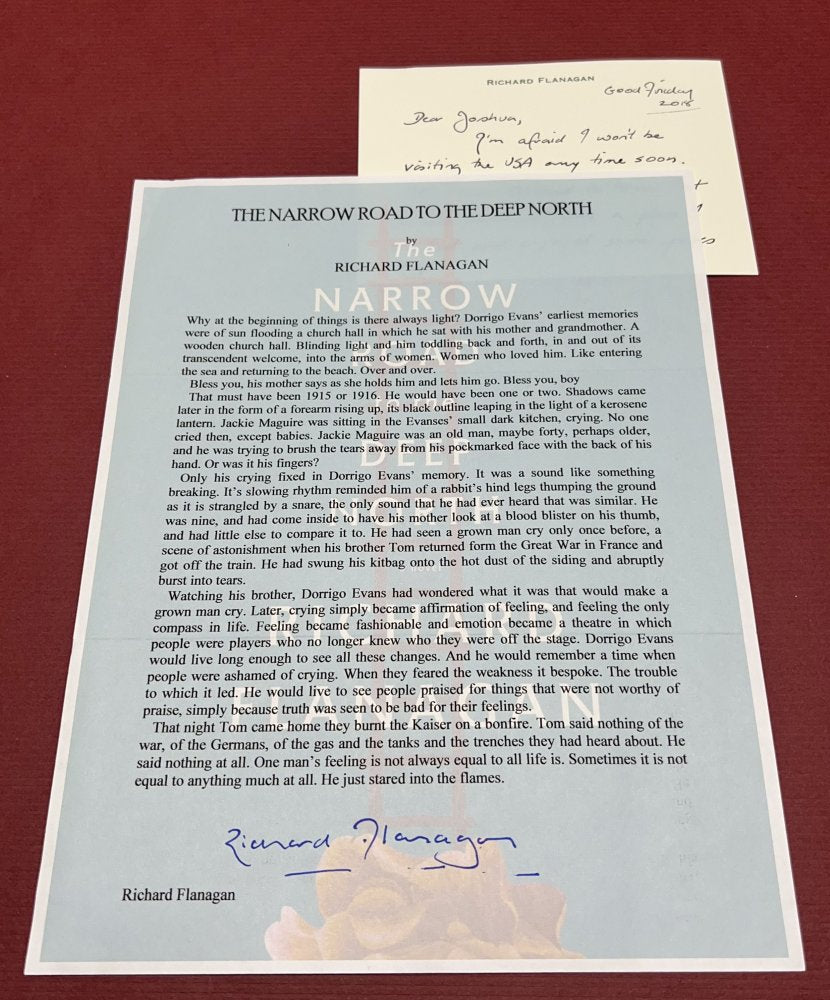 RICHARD FLANAGAN
Good Friday
2018
Dear Joshua,
I'm afraid I won't be
visiting the USA any time soon.
THE NARROW ROAD TO THE DEEP NORTH
by
The
RICHARD FLANAGAN
NARROW
Why at the beginning of things is there always light? Dorrigo Evans' earliest memories
were of sun flooding a church hall in which he sat with his mother and grandmother. A
wooden church hall. Blinding light and him toddling back and forth, in and out of its
transcendent welcome, into the arms of women. Women who loved him. Like entering
ROAD
the sea and returning to the beach. Over and over.
Bless you, his mother says as she holds him and lets him go. Bless you, boy
That must have been 1915 or 1916. He would have been one or two. Shadows came
to the
later in the form of a forearm rising up, its black outline leaping in the light of a kerosene
lantern. Jackie Maguire was sitting in the Evanses' small dark kitchen, crying. No one
cried then, except babies. Jackie Maguire was an old man, maybe forty, perhaps older,
DEEP
and he was trying to brush the tears away from his pockmarked face with the back of his
hand. Or was it his fingers?
Only his crying fixed in Dorrigo Evans' memory. It was a sound like something
breaking. It's slowing rhythm reminded him of a rabbit's hind legs thumping the ground
as it is strangled by a snare, the only sound that he had ever heard that was similar. He
NORTH
was nine, and had come inside to have his mother look at a blood blister on his thumb,
and had little else to compare it to. He had seen a grown man cry only once before, a
scene of astonishment when his brother Tom returned form the Great War in France and
got off the train. He had swung his kitbag onto the hot dust of the siding and abruptly
burst into tears.
Watching his brother, Dorrigo Evans had wondered what it was that would make a
grown man cry. Later, crying simply became affirmation of feeling, and feeling the only
compass in life. Feeling became fashionable and emotion became a theatre in which
RICHARD
people were players who no longer knew who they were off the stage. Dorrigo Evans
would live long enough to see all these changes. And he would remember a time when
people were ashamed of crying. When they feared the weakness it bespoke. The trouble
to which it led. He would live to see people praised for things that were not worthy of
FLANAGAN
praise, simply because truth was seen to be bad for their feelings.
That night Tom came home they burnt the Kaiser on a bonfire. Tom said nothing of the
war, of the Germans, of the gas and the tanks and the trenches they had heard about. He
said nothing at all. One man's feeling is not always equal to all life is. Sometimes it is not
equal to anything much at all. He just stared into the flames.
Richard Flanagan
Richard Flanagan